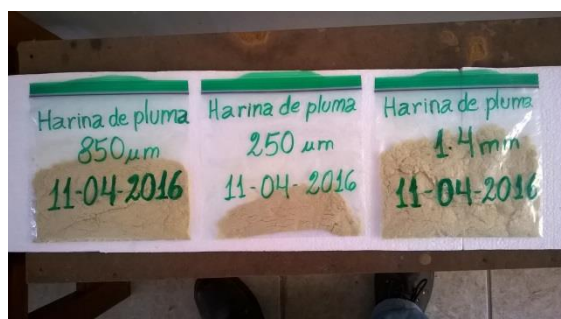 Harina de pluma
850 µm
11-04-2016
Harina de pluma
250 µm
11-04-2016
Harina de pluma
1.4 mm
11-04-2016